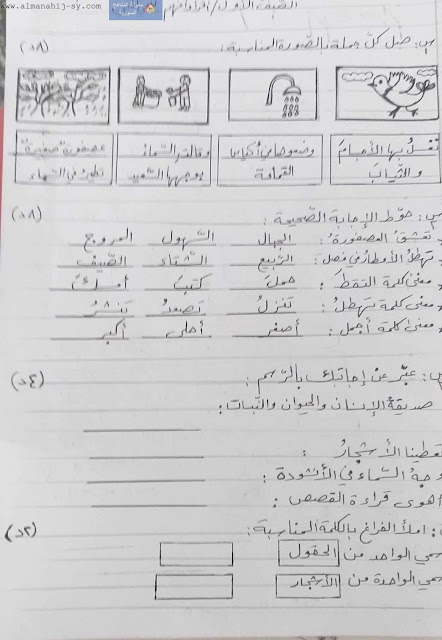 www.almanahij-sy.com
الصف الأول/
س: صل كل جملة بالصورة المناسبة: (٨د)
تغسل بها الأجسامَ وضعوها في أكياس وقالت السماءُ عصفورة صغيرة
والثيابَ القمامة بوجهها السعيد تطير في السماء
س: حوّط الإجابة الصحيحة: (٨د)
تعشق العصفورة: الجبال السّهول المروج
تهطل الأمطار في فصل: الرّبيع الشّتاء الصّيف
معنى كلمة التقط: حملَ كتبَ
معنى كلمة تهطل: تنزلُ تصعدُ تنشرُ
معنى كلمة أجمل: أصغر أحلى أكبر
س: عبّر عن إجابتك بالرّسم: (٤د)
صديقة الإنسان والحيوان والنّبات:
تعطينا الأشجارُ:
وجهُ السّماء في الأنشودة:
أهوى قراءة القصص:
: املأ الفراغ بالكلمة المناسبة: (٢د)
سمي الواحد من الحقول
سمي الواحدة من الأشجار